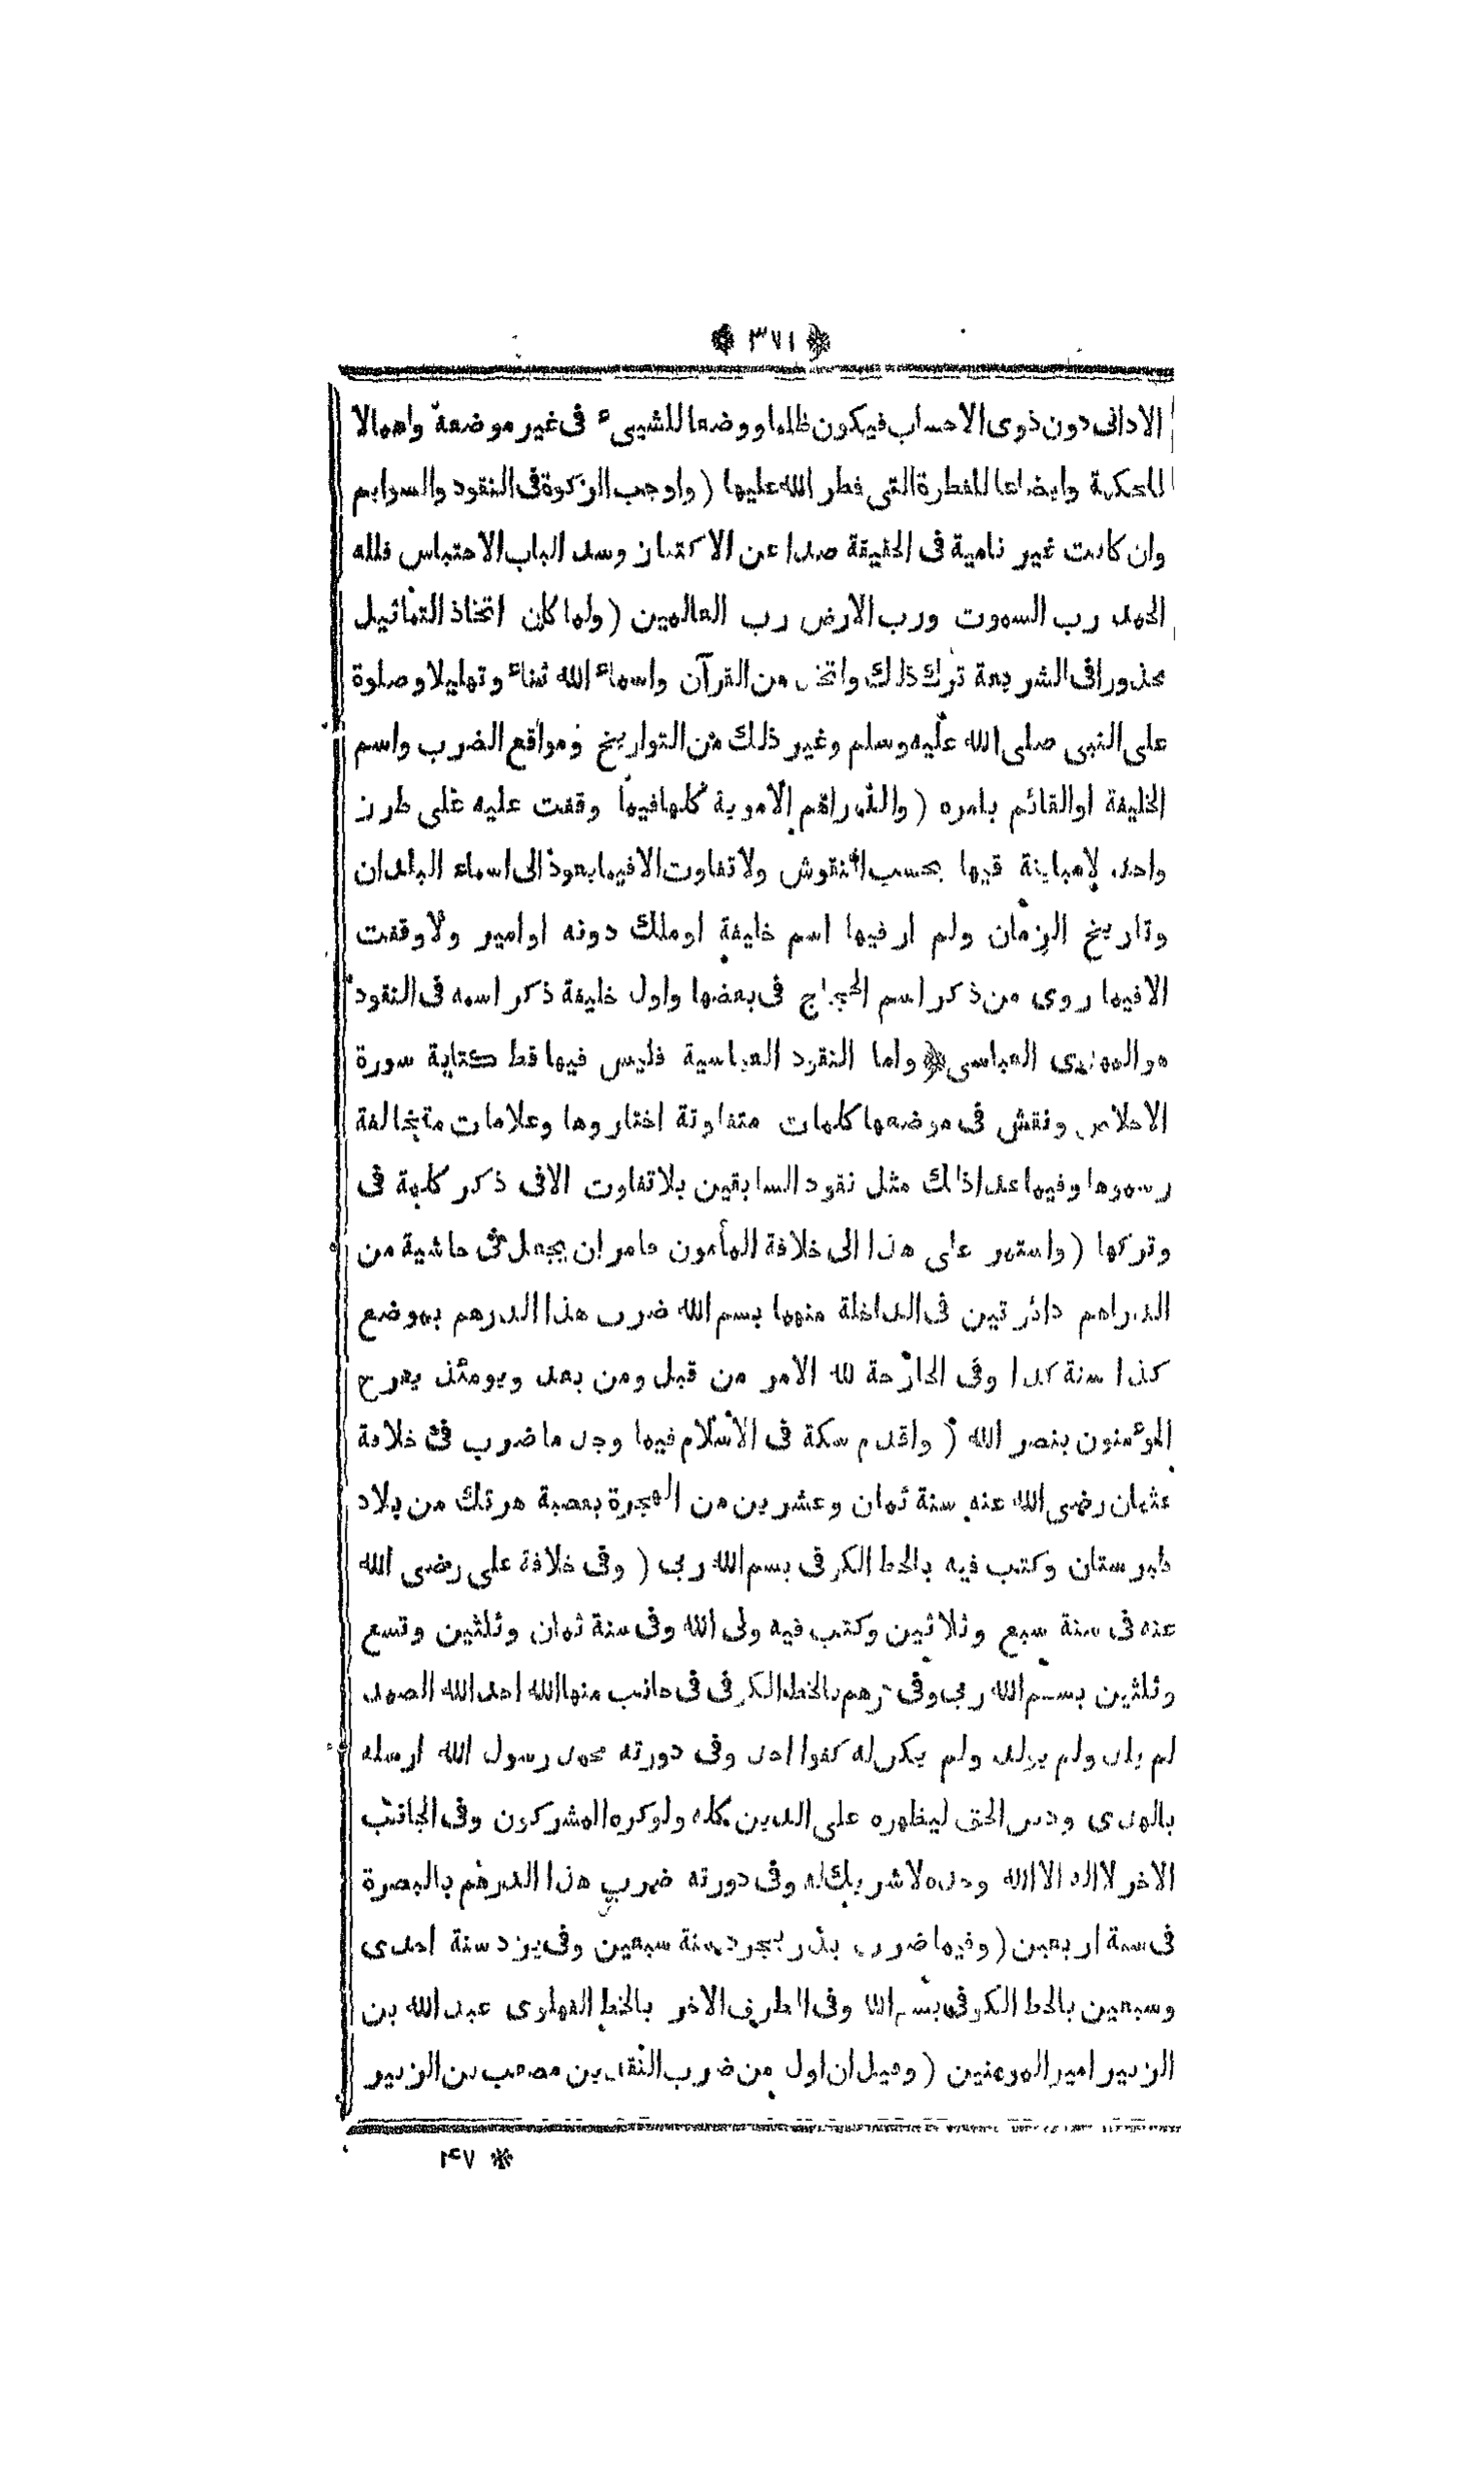 ٣٧١
الادانى دون ذوى الاحساب فيكون ظلما ووضعا للشيىء فى غير موضعه واهمالا
للحكمة وايضاعا للفطرة التى فطر الله عليها ( واوجب الزكوة فى النقود والسوايم
وان كانت غير نامية فى الحقيقة صدا عن الاكتناز وسد الباب الاحتباس فلله
الحمد رب السموت ورب الارض رب العالمين ( ولما كان اتخاذ التماثيل
محذورا فى الشريعة ترك ذلك واتخذ من القرآن واسماء الله ثناء وتهليلا وصلوة
على النبى صلى الله عليه وسلم وغير ذلك من التواريخ ومواقع الضرب واسم
الخليفة او القائم بامره ( والدراهم الاموية كلها فيما وقفت عليه على طرز
واحد لامباينة فيها بحسب النقوش ولا تفاوت الا فيما يعود الى اسماء البلدان
وتاريخ الزمان ولم ار فيها اسم خليفة او ملك دونه او امير ولا وقفت
الا فيما روى من ذكر اسم الحجاج فى بعضها واول خليفة ذكر اسمه فى النقود
هو المهدى العباسى واما النقود العباسية فليس فيها قط كتابة سورة
الاخلاص ونقش فى موضعها كلمات متفاوتة اختاروها وعلامات متخالفة
رسموها وفيما عدا ذلك مثل نقود السابقين بلا تفاوت الا فى ذكر كلمة فى
وتركها ( واستمر على هذا الى خلافة المأمون فامر ان يجعل فى حاشية من
الدراهم دائرتين فى الداخلة منهما بسم الله ضرب هذا الدرهم بموضع
كذا سنة كذا وفى الخارجة لله الامر من قبل ومن بعد ويومئذ يفرح
المؤمنون بنصر الله ( واقدم سكة فى الاسلام فيما وجد ما ضرب فى خلافة
عثمان رضى الله عنه سنة ثمان وعشرين من الهجرة بقصبة هرتك من بلاد
طبرستان وكتب فيه بالخط الكوفى بسم الله ربى ( وفى خلافة على رضى الله
عنه فى سنة سبع وثلاثين وكتب فيه ولى الله وفى سنة ثمان وثلثين وتسع
وثلثين بسم الله ربى وفى درهم بالخط الكوفى فى جانب منها الله احد الله الصمد
لم يلد ولم يولد ولم يكن له كفوا احد وفى دورته محمد رسول الله ارسله
بالهدى ودين الحق ليظهره على الدين كله ولوكره المشركون وفى الجانب
الاخر لا اله الا الله وحده لا شريك له وفى دورته ضرب هذا الدرهم بالبصرة
فى سنة اربعين ( وفيما ضرب بدر بجرد سنة سبعين وفى يزد سنة احدى
وسبعين بالخط الكوفى بسم الله وفى الطرف الاخر بالخط الفهلوى عبد الله بن
الزبير امير المومنين ( وقيل ان اول من ضرب النقدين مصعب بن الزبير
٤٧